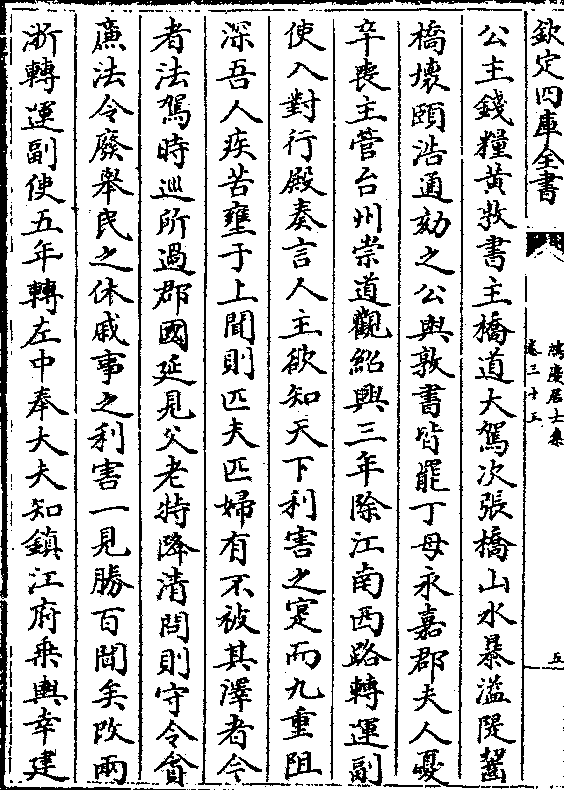 欽定四庫全書
鴻慶居士集
卷三十五
五
公主錢糧黃敦書主橋道大駕次張橋山水暴溢隄齧
橋壞頤浩通劾之公與敦書皆罷丁母永嘉郡夫人憂
卒喪主管台州崇道觀紹興三年除江南西路轉運副
使入對行殿奏言人主欲知天下利害之寔而九重阻
深吾人疾苦壅于上聞則匹夫匹婦有不被其澤者今
者法駕時巡所過郡國延見父老特降清問則守令貪
廉法令廢舉民之休戚事之利害一見勝百聞矣改兩
浙轉運副使五年轉左中奉大夫知鎮江府乗輿幸建